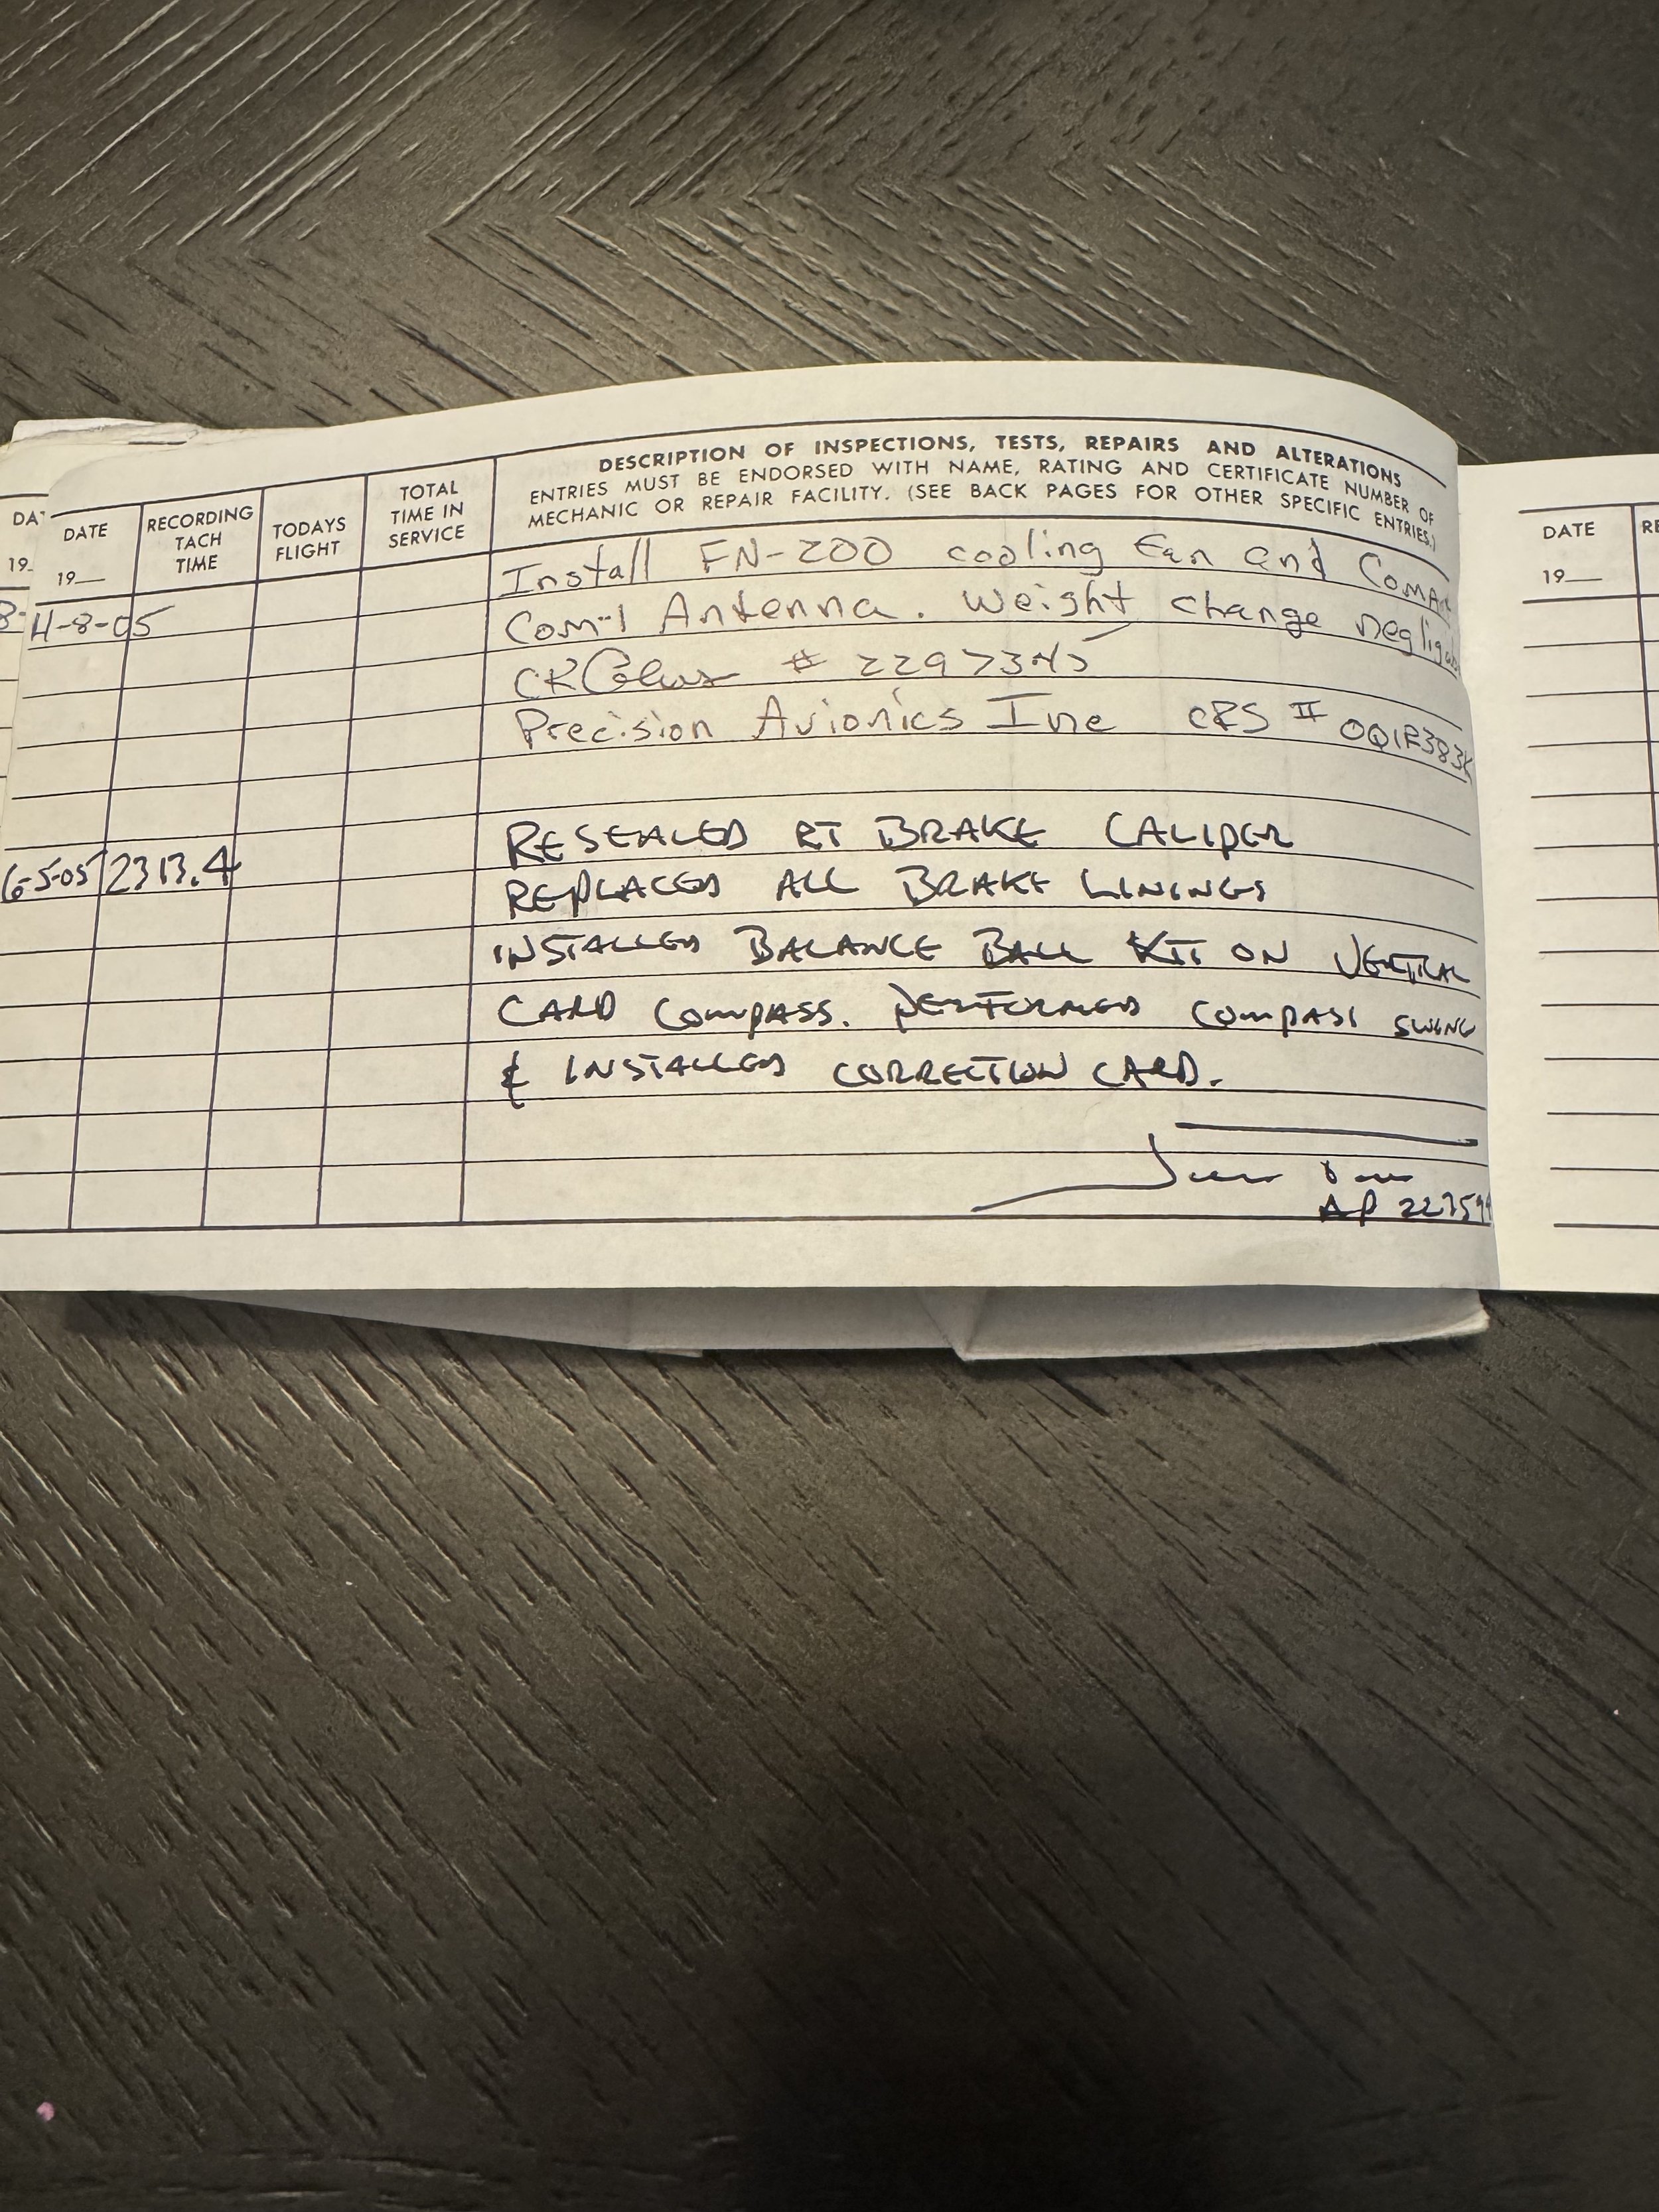 DESCRIPTION OF INSPECTIONS, TESTS, REPAIRS AND ALTERATIONS
ENTRIES MUST BE ENDORSED WITH NAME, RATING AND CERTIFICATE NUMBER OF
MECHANIC OR REPAIR FACILITY. (SEE BACK PAGES FOR OTHER SPECIFIC ENTRIES.)
DATE
19__
RECORDING
TACH
TIME
TODAYS
FLIGHT
TOTAL
TIME IN
SERVICE
Install FN-200 cooling Fan and
4-8-05
Com-1 Antenna. Weight change
# 2297345
Precision Avionics Inc CRS # OQ1R383K
RESEALED RT BRAKE CALIPER
6-5-05 2313.4
REPLACED ALL BRAKE LININGS
INSTALLED BALANCE BALL KIT ON VERTICAL
CARD COMPASS. PERFORMED COMPASS SWING
& INSTALLED CORRECTION CARD.
AP
DATE
19__